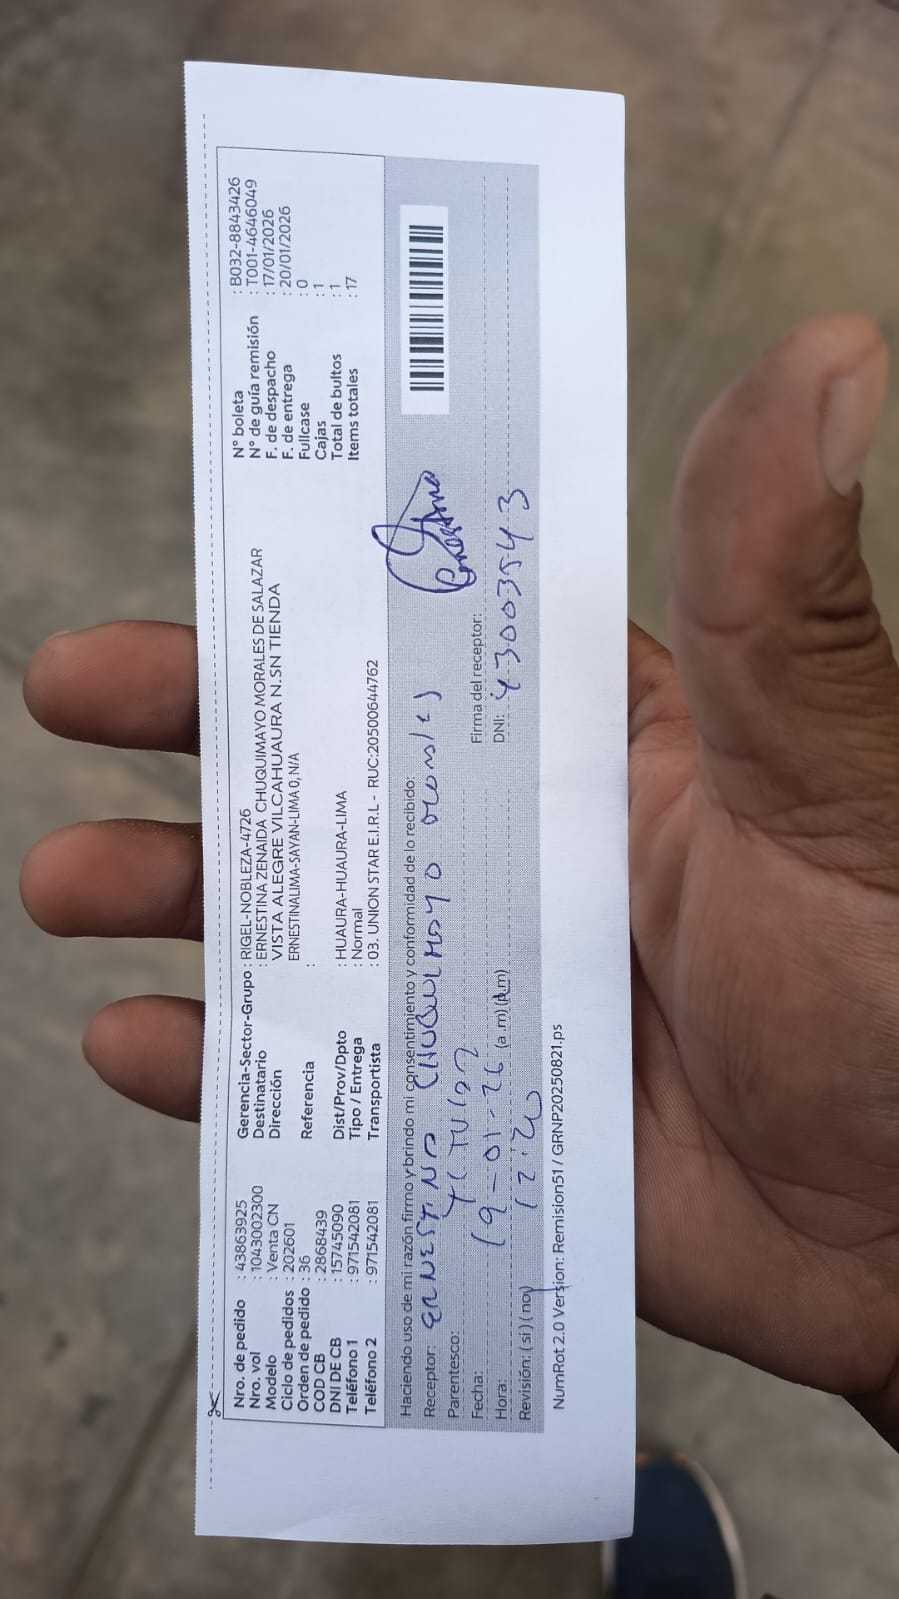 Nro. de pedido : 43863925
Nro. vol : 1043002300
Modelo : Venta CN
Ciclo de pedidos : 202601
Orden de pedido : 36
COD CB : 2868439
DNI DE CB : 15745090
Teléfono 1 : 971542081
Teléfono 2 : 971542081
Gerencia-Sector-Grupo : RIGEL-NOBLEZA-4726
Destinatario : ERNESTINA ZENAIDA CHUQUIMAYO MORALES DE SALAZAR
Dirección VISTA ALEGRE VILCAHUAURA N.SN TIENDA
ERNESTINALIMA-SAYAN-LIMA 0,N/A
Referencia :
Dist/Prov/Dpto : HUAURA-HUAURA-LIMA
Tipo / Entrega : Normal
Transportista : 03. UNION STAR E.I.R.L - RUC:20500644762
N° boleta : B032-8843426
N° de guía remisión : T001-4646049
F. de despacho : 17/01/2026
F. de entrega : 20/01/2026
Fullcase : 0
Cajas : 1
Total de bultos : 1
Items totales : 17
Haciendo uso de mi razón firmo y brindo mi consentimiento y conformidad de lo recibido:
Receptor: ERNESTINA CHUQUIMAYO
Parentesco:
Fecha: 19-01-26
Hora: (a.m)(p.m)
Revisión: (si) (no)
Firma del receptor: Ernestina
DNI: 43003543
NumRot 2.0 Version: Remision51 / GRNP20250821.ps